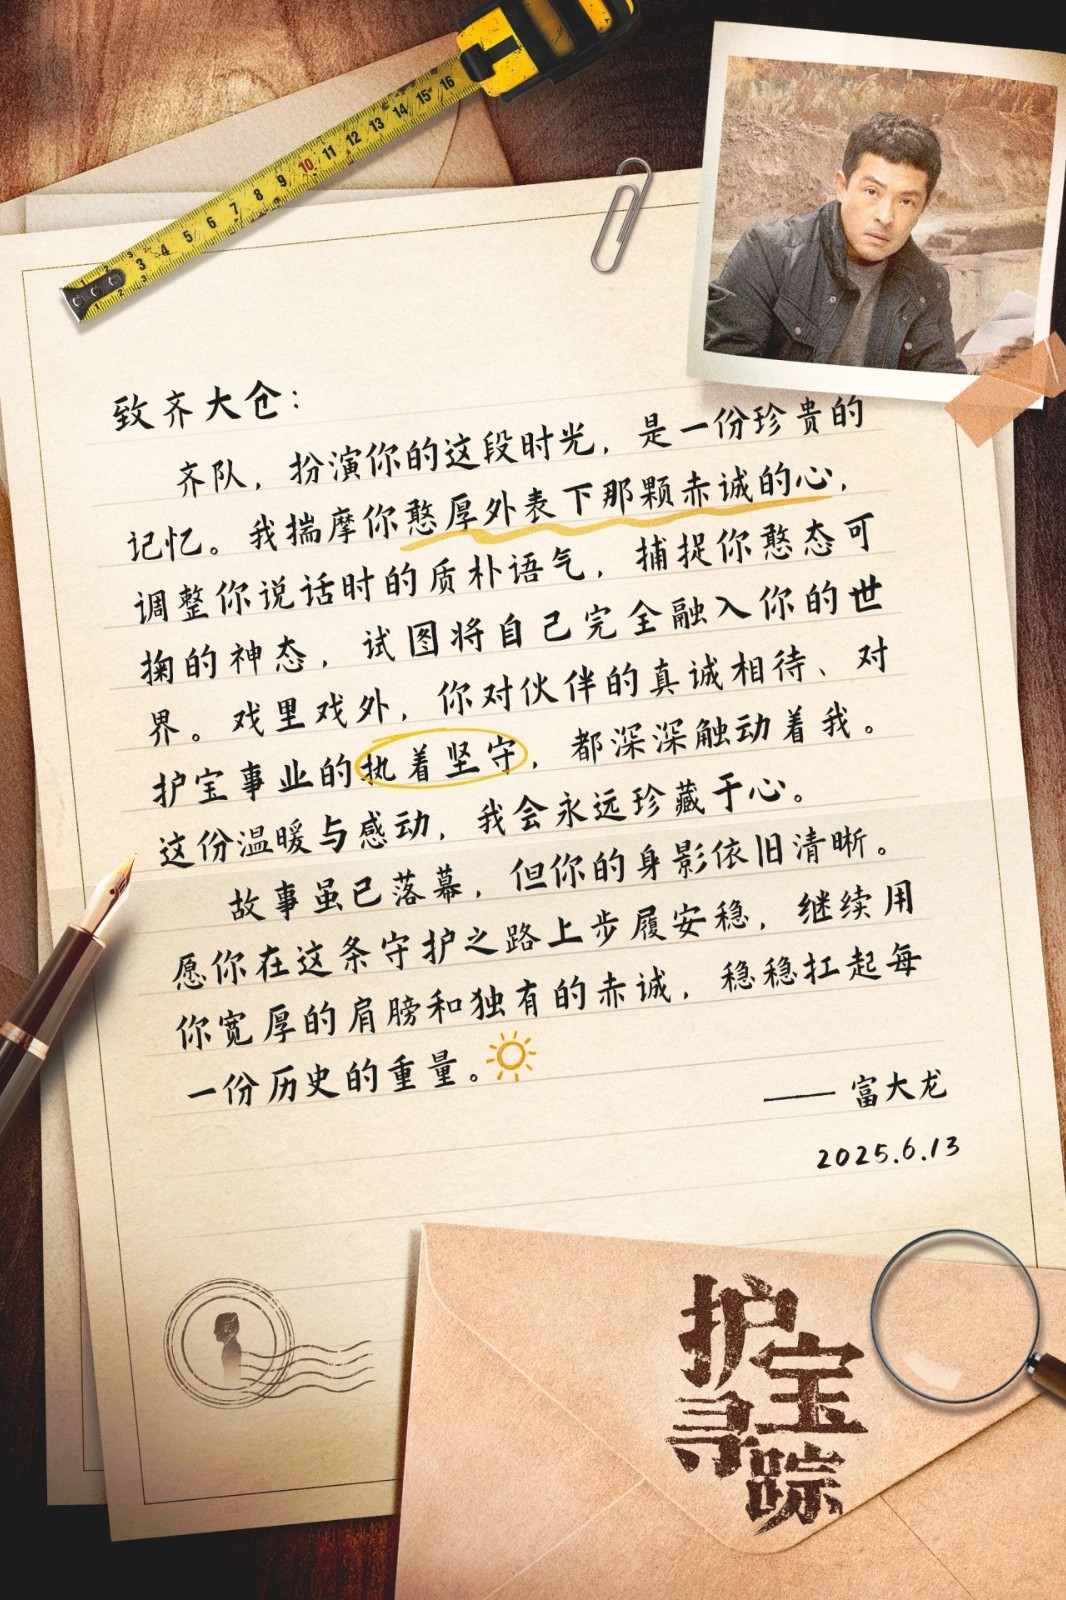 3 4 5 6 7 8 9 10 11 12 13 14 15 16
致齐大仓：
齐队，扮演你的这段时光，是一份珍贵的
记忆。我揣摩你憨厚外表下那颗赤诚的心，
调整你说话时的质朴语气，捕捉你憨态可
掬的神态，试图将自己完全融入你的世
界。戏里戏外，你对伙伴的真诚相待、对
护宝事业的执着坚守，都深深触动着我。
这份温暖与感动，我会永远珍藏于心。
故事虽已落幕，但你的身影依旧清晰。
愿你在这条守护之路上步履安稳，继续用
你宽厚的肩膀和独有的赤诚，稳稳扛起每
一份历史的重量。
——富大龙
2025.6.13
护宝
寻踪